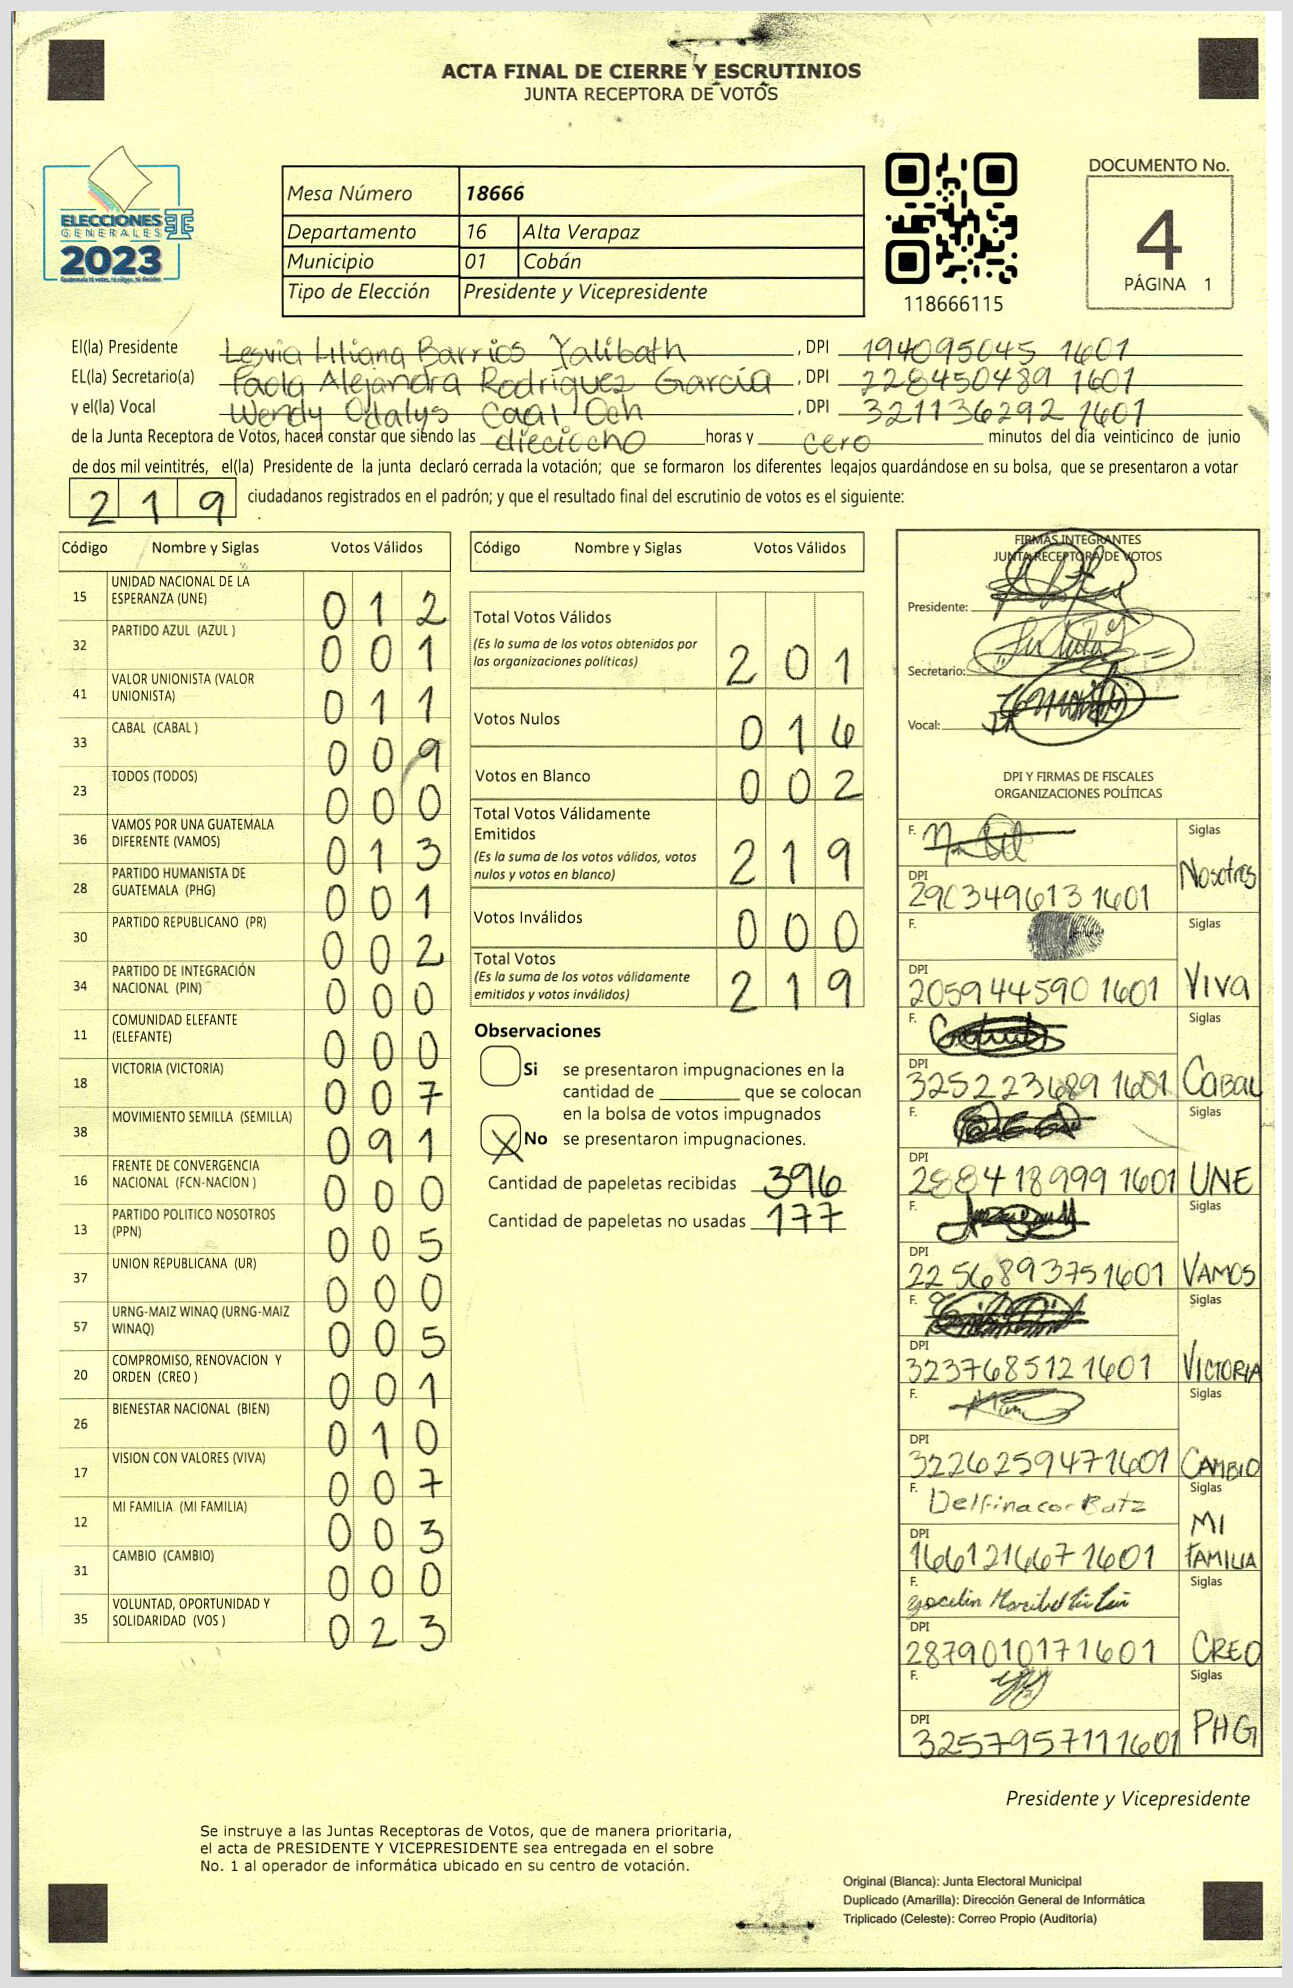 ACTA FINAL DE CIERRE Y ESCRUTINIOS
JUNTA RECEPTORA DE VOTOS
ELECCIONES
GENERALES
2023
Mesa Número 18666
Departamento 16 Alta Verapaz
Municipio 01 Cobán
Tipo de Elección Presidente y Vicepresidente
118666115
DOCUMENTO No.
4
PÁGINA 1
El(la) Presidente Lesvia Liliana Barrios Yalibath , DPI 194095045 1601
EL(la) Secretario(a) Paola Alejandra Rodríguez García , DPI 228450489 1601
y el(la) Vocal Wendy Odalys Caal Och , DPI 321136292 1601
de la Junta Receptora de Votos, hacen constar que siendo las dieciocho horas y cero minutos del día veinticinco de junio
de dos mil veintitrés, el(la) Presidente de la junta declaró cerrada la votación; que se formaron los diferentes legajos guardándose en su bolsa, que se presentaron a votar
219 ciudadanos registrados en el padrón; y que el resultado final del escrutinio de votos es el siguiente:
Código Nombre y Siglas Votos Válidos
15 UNIDAD NACIONAL DE LA ESPERANZA (UNE) 012
32 PARTIDO AZUL (AZUL ) 001
41 VALOR UNIONISTA (VALOR UNIONISTA) 011
33 CABAL (CABAL ) 009
23 TODOS (TODOS) 000
36 VAMOS POR UNA GUATEMALA DIFERENTE (VAMOS) 013
28 PARTIDO HUMANISTA DE GUATEMALA (PHG) 001
30 PARTIDO REPUBLICANO (PR) 002
34 PARTIDO DE INTEGRACIÓN NACIONAL (PIN) 000
11 COMUNIDAD ELEFANTE (ELEFANTE) 000
18 VICTORIA (VICTORIA) 007
38 MOVIMIENTO SEMILLA (SEMILLA) 091
16 FRENTE DE CONVERGENCIA NACIONAL (FCN-NACION ) 000
13 PARTIDO POLITICO NOSOTROS (PPN) 005
37 UNION REPUBLICANA (UR) 000
57 URNG-MAIZ WINAQ (URNG-MAIZ WINAQ) 005
20 COMPROMISO, RENOVACION Y ORDEN (CREO ) 001
26 BIENESTAR NACIONAL (BIEN) 010
17 VISION CON VALORES (VIVA) 007
12 MI FAMILIA (MI FAMILIA) 003
31 CAMBIO (CAMBIO) 000
35 VOLUNTAD, OPORTUNIDAD Y SOLIDARIDAD (VOS ) 023
Código Nombre y Siglas Votos Válidos
Total Votos Válidos 201
(Es la suma de los votos obtenidos por
las organizaciones políticas)
Votos Nulos 016
Votos en Blanco 002
Total Votos Válidamente
Emitidos 219
(Es la suma de los votos válidos, votos
nulos y votos en blanco)
Votos Inválidos 000
Total Votos 219
(Es la suma de los votos válidamente
emitidos y votos inválidos)
Observaciones
Si se presentaron impugnaciones en la
cantidad de ________ que se colocan
en la bolsa de votos impugnados
X No se presentaron impugnaciones.
Cantidad de papeletas recibidas 396
Cantidad de papeletas no usadas 177
FIRMAS INTEGRANTES
JUNTA RECEPTORA DE VOTOS
Presidente:
Secretario:
Vocal:
DPI Y FIRMAS DE FISCALES
ORGANIZACIONES POLÍTICAS
F. Siglas
DPI 290349613 1601 Nosotros
F. Siglas
DPI 205944590 1601 VIVA
F. Siglas
DPI 325223689 1601 CABAL
F. Siglas
DPI 288418999 1601 UNE
F. Siglas
DPI 225689375 1601 VAMOS
F. Siglas
DPI 323768512 1601 VICTORIA
F. Siglas
DPI 322625947 1601 CAMBIO
F. Delfina Siglas
DPI 166121667 1601 MI FAMILIA
F. Siglas
DPI 287901017 1601 CREO
F. Siglas
DPI 325795711 1601 PHG
Presidente y Vicepresidente
Se instruye a las Juntas Receptoras de Votos, que de manera prioritaria,
el acta de PRESIDENTE Y VICEPRESIDENTE sea entregada en el sobre
No. 1 al operador de informática ubicado en su centro de votación.
Original (Blanca): Junta Electoral Municipal
Duplicado (Amarilla): Dirección General de Informática
Triplicado (Celeste): Correo Propio (Auditoría)